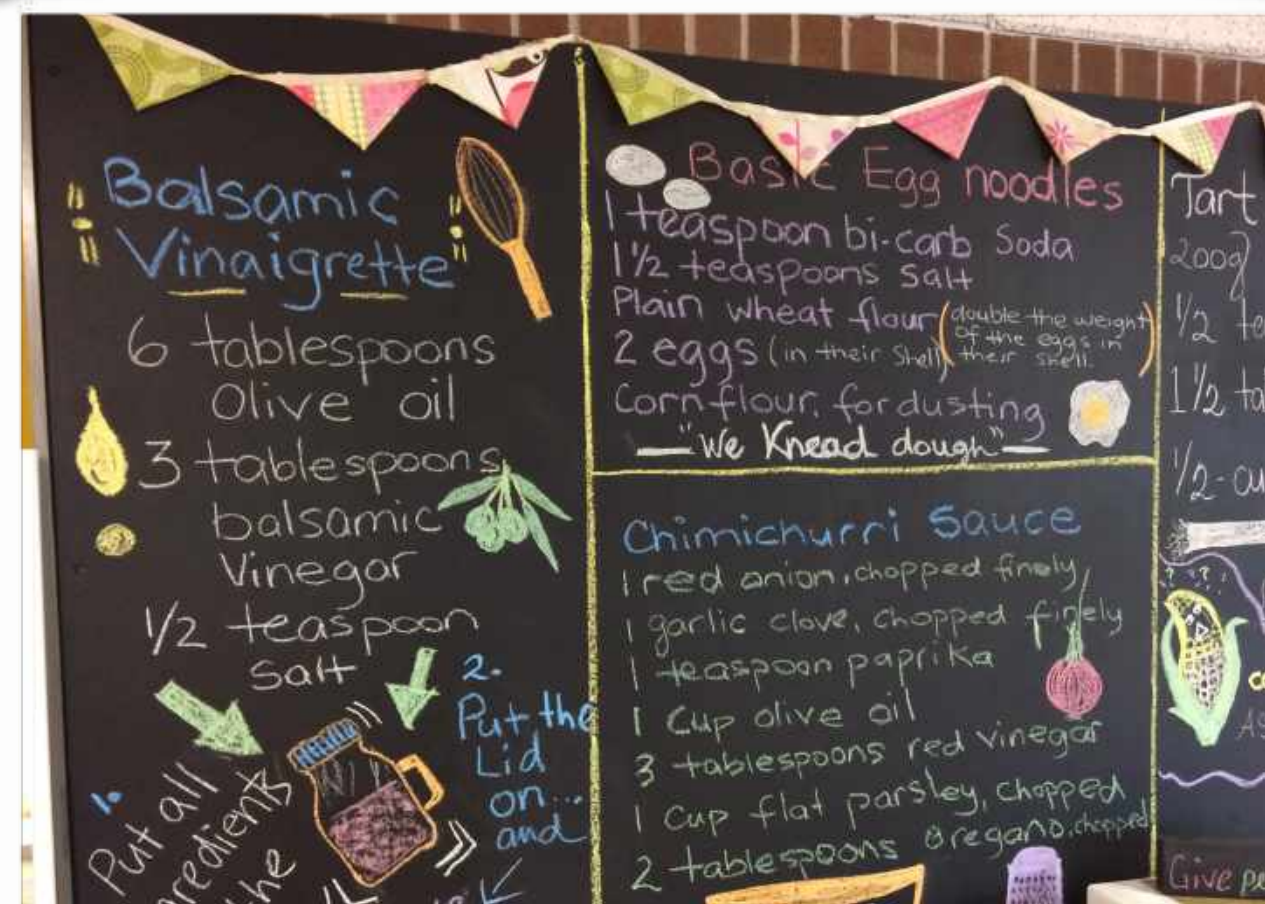 Balsamic
Vinaigrette
6 tablespoons
Olive oil
3 tablespoons
balsamic
Vinegar
1/2 teaspoon
Salt
1.
Put all
the
2.
Put the
Lid
on...
and
Basic Egg noodles
1 teaspoon bi-carb Soda
1½ teaspoons Salt
Plain wheat flour (double the weight
of the eggs in
their shell)
2 eggs (in their Shell)
Corn flour, for dusting
"We Knead dough"
Chimichurri Sauce
1 red onion, chopped finely
1 garlic clove, chopped finely
1 teaspoon paprika
1 Cup olive oil
3 tablespoons red vinegar
1 Cup flat parsley, chopped
2 tablespoons oregano, chopped
Tart
200g
1/2 te
1½ ta
1/2-cu
? ? ?
Give pe